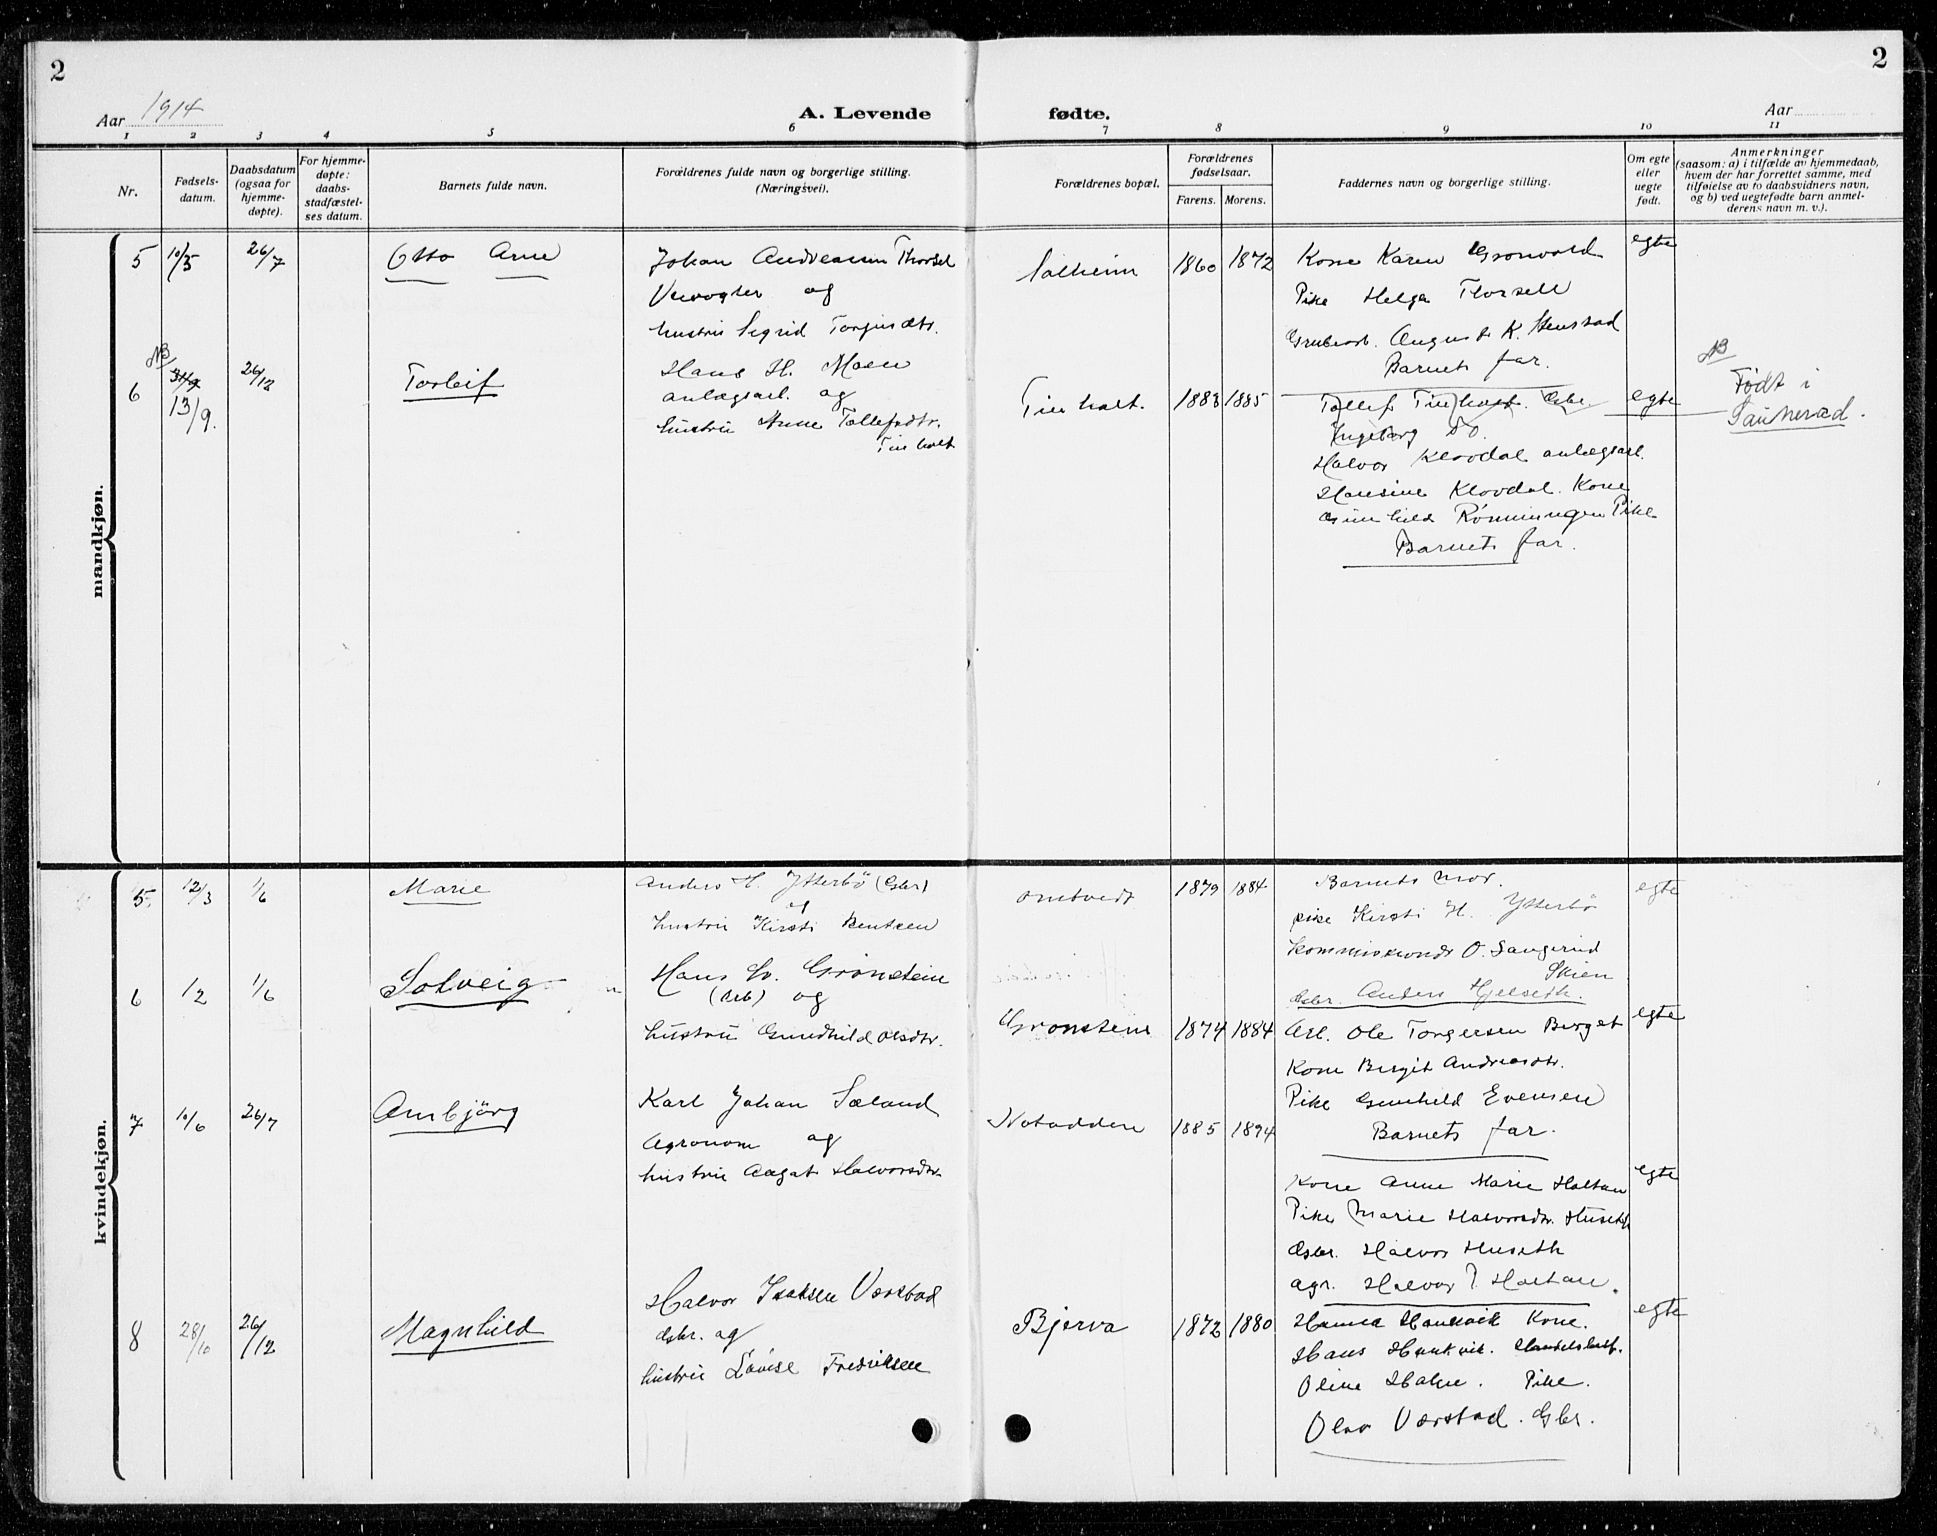 2
2
Aar 1914
A. Levende
fødte.
Aar
1 2 3 4 5 6 7 8 9 10 11
Nr.
Fødsels-
datum.
Daabsdatum
(ogsaa for
hjemme-
døpte).
For hjemme-
døpte:
daabs-
stadfæstel-
ses datum.
Barnets fulde navn.
Forældrenes fulde navn og borgerlige stilling.
(Næringsvei).
Forældrenes bopæl.
Forældrenes
fødselsaar.
Farens. Morens.
Faddernes navn og borgerlige stilling.
Om egte
eller
uegte
født.
Anmerkninger
(saasom: a) i tilfælde av hjemmedaab,
hvem der har forrettet samme, med
tilføielse av to daabsvidners navn,
og b) ved uegtefødte barn anmel-
derens navn m. v.).
mandkjøn.
5 10/5 26/7 Otto Arne
Johan Andreassen Thorsel
og
hustru Sigrid Torjusdtr.
Solheim 1860 1872
Kone Karen Gronvold
Pike Helga Thorsell
Grubearb. August K. Stenstad
Barnets far.
egte
NB
6 31/9 13/9. 26/12 Torleif
Hans H. Moen
anlægsarb. og
hustru Anne Tollefsdtr.
Tinholt
Tinholt. 1883 1885
Tollef Tinholt. Gbr.
Ingeborg do.
Halvor Klovdal anlægsarb.
Hansine Klovdal. Kone
Gunhild Rönningen Pike
Barnets far.
egte
NB
Født i
Sauherad.
kvindekjøn.
5 12/3 1/6 Marie
Anders H. Ytterbö (Gbr)
og
hustru Kirsti Bentsen
Omtvedt 1879 1884
Barnets mor.
pike Kirsti H. Ytterbö
O. Haugerud
Skien
Gbr. Anders Hjelseth.
egte
6 1/2 1/6 Solveig
Hans Grönstein
(Arb) og
hustru Gundhild Olsdtr.
Gronstein 1874 1884
Arb. Ole Torgersen Berget
Kone Birgit Andreasdtr.
Pike Gunhild Evensen
Barnets far.
egte
7 10/6 26/7 Ambjörg
Karl Johan Sæland
Agronom og
hustru Aagat Halvorsdtr.
Notodden 1885 1894
Kone Anne Marie Holtan
Pike Marie Halvorsdtr. Huseth
Gbr. Halvor Huseth
agr. Halvor Holtan.
egte
8 28/10 26/12 Magnhild
Halvor Isaksen Værstad
Gbr. og
hustru Lovise Fredriksen
Bjerva 1872 1880
Kone.
Hans
Oline Pike.
Olav Værstad. Gbr.
egte